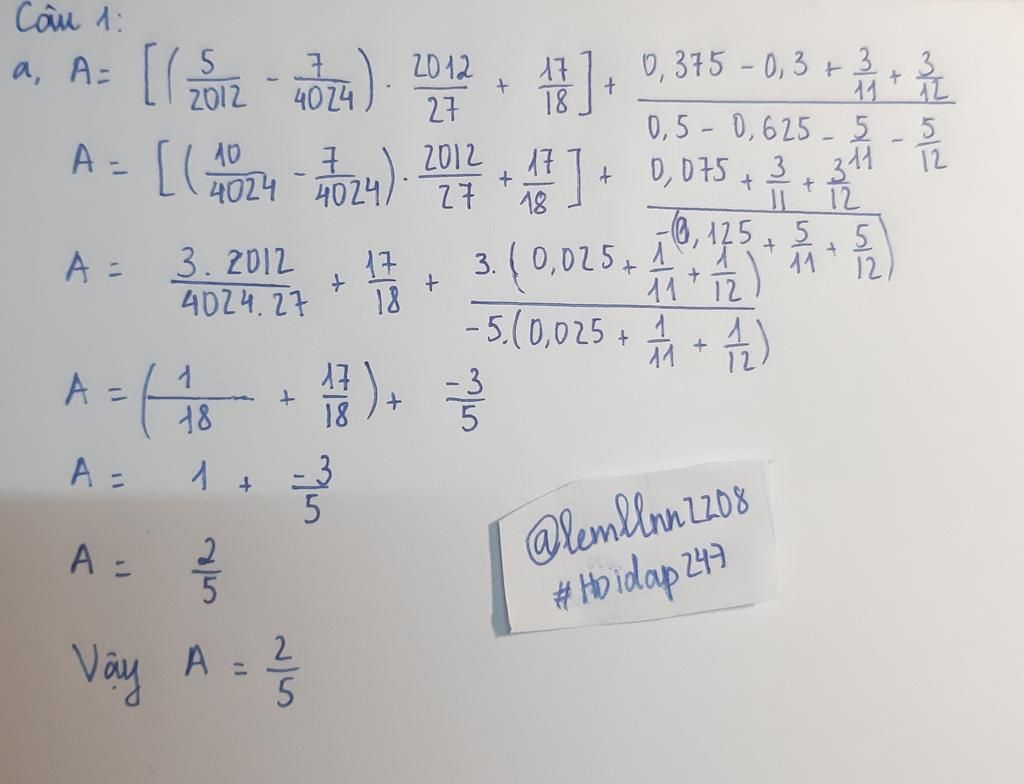 Câu 1:
a, A = [(5/2012 - 7/4024) . 2012/27 + 17/18] + (0,375 - 0,3 + 3/11 + 3/12)/(0,5 - 0,625 - 5/11 - 5/12)
A = [(10/4024 - 7/4024) . 2012/27 + 17/18] + (0,075 + 3/11 + 3/12)/(-(0,125 + 5/11 + 5/12))
A = 3.2012/4024.27 + 17/18 + 3.(0,025 + 1/11 + 1/12)/-5.(0,025 + 1/11 + 1/12)
A = (1/18 + 17/18) + -3/5
A = 1 + -3/5
A = 2/5
Vậy A = 2/5
@lemllnn2208
#Hoidap247